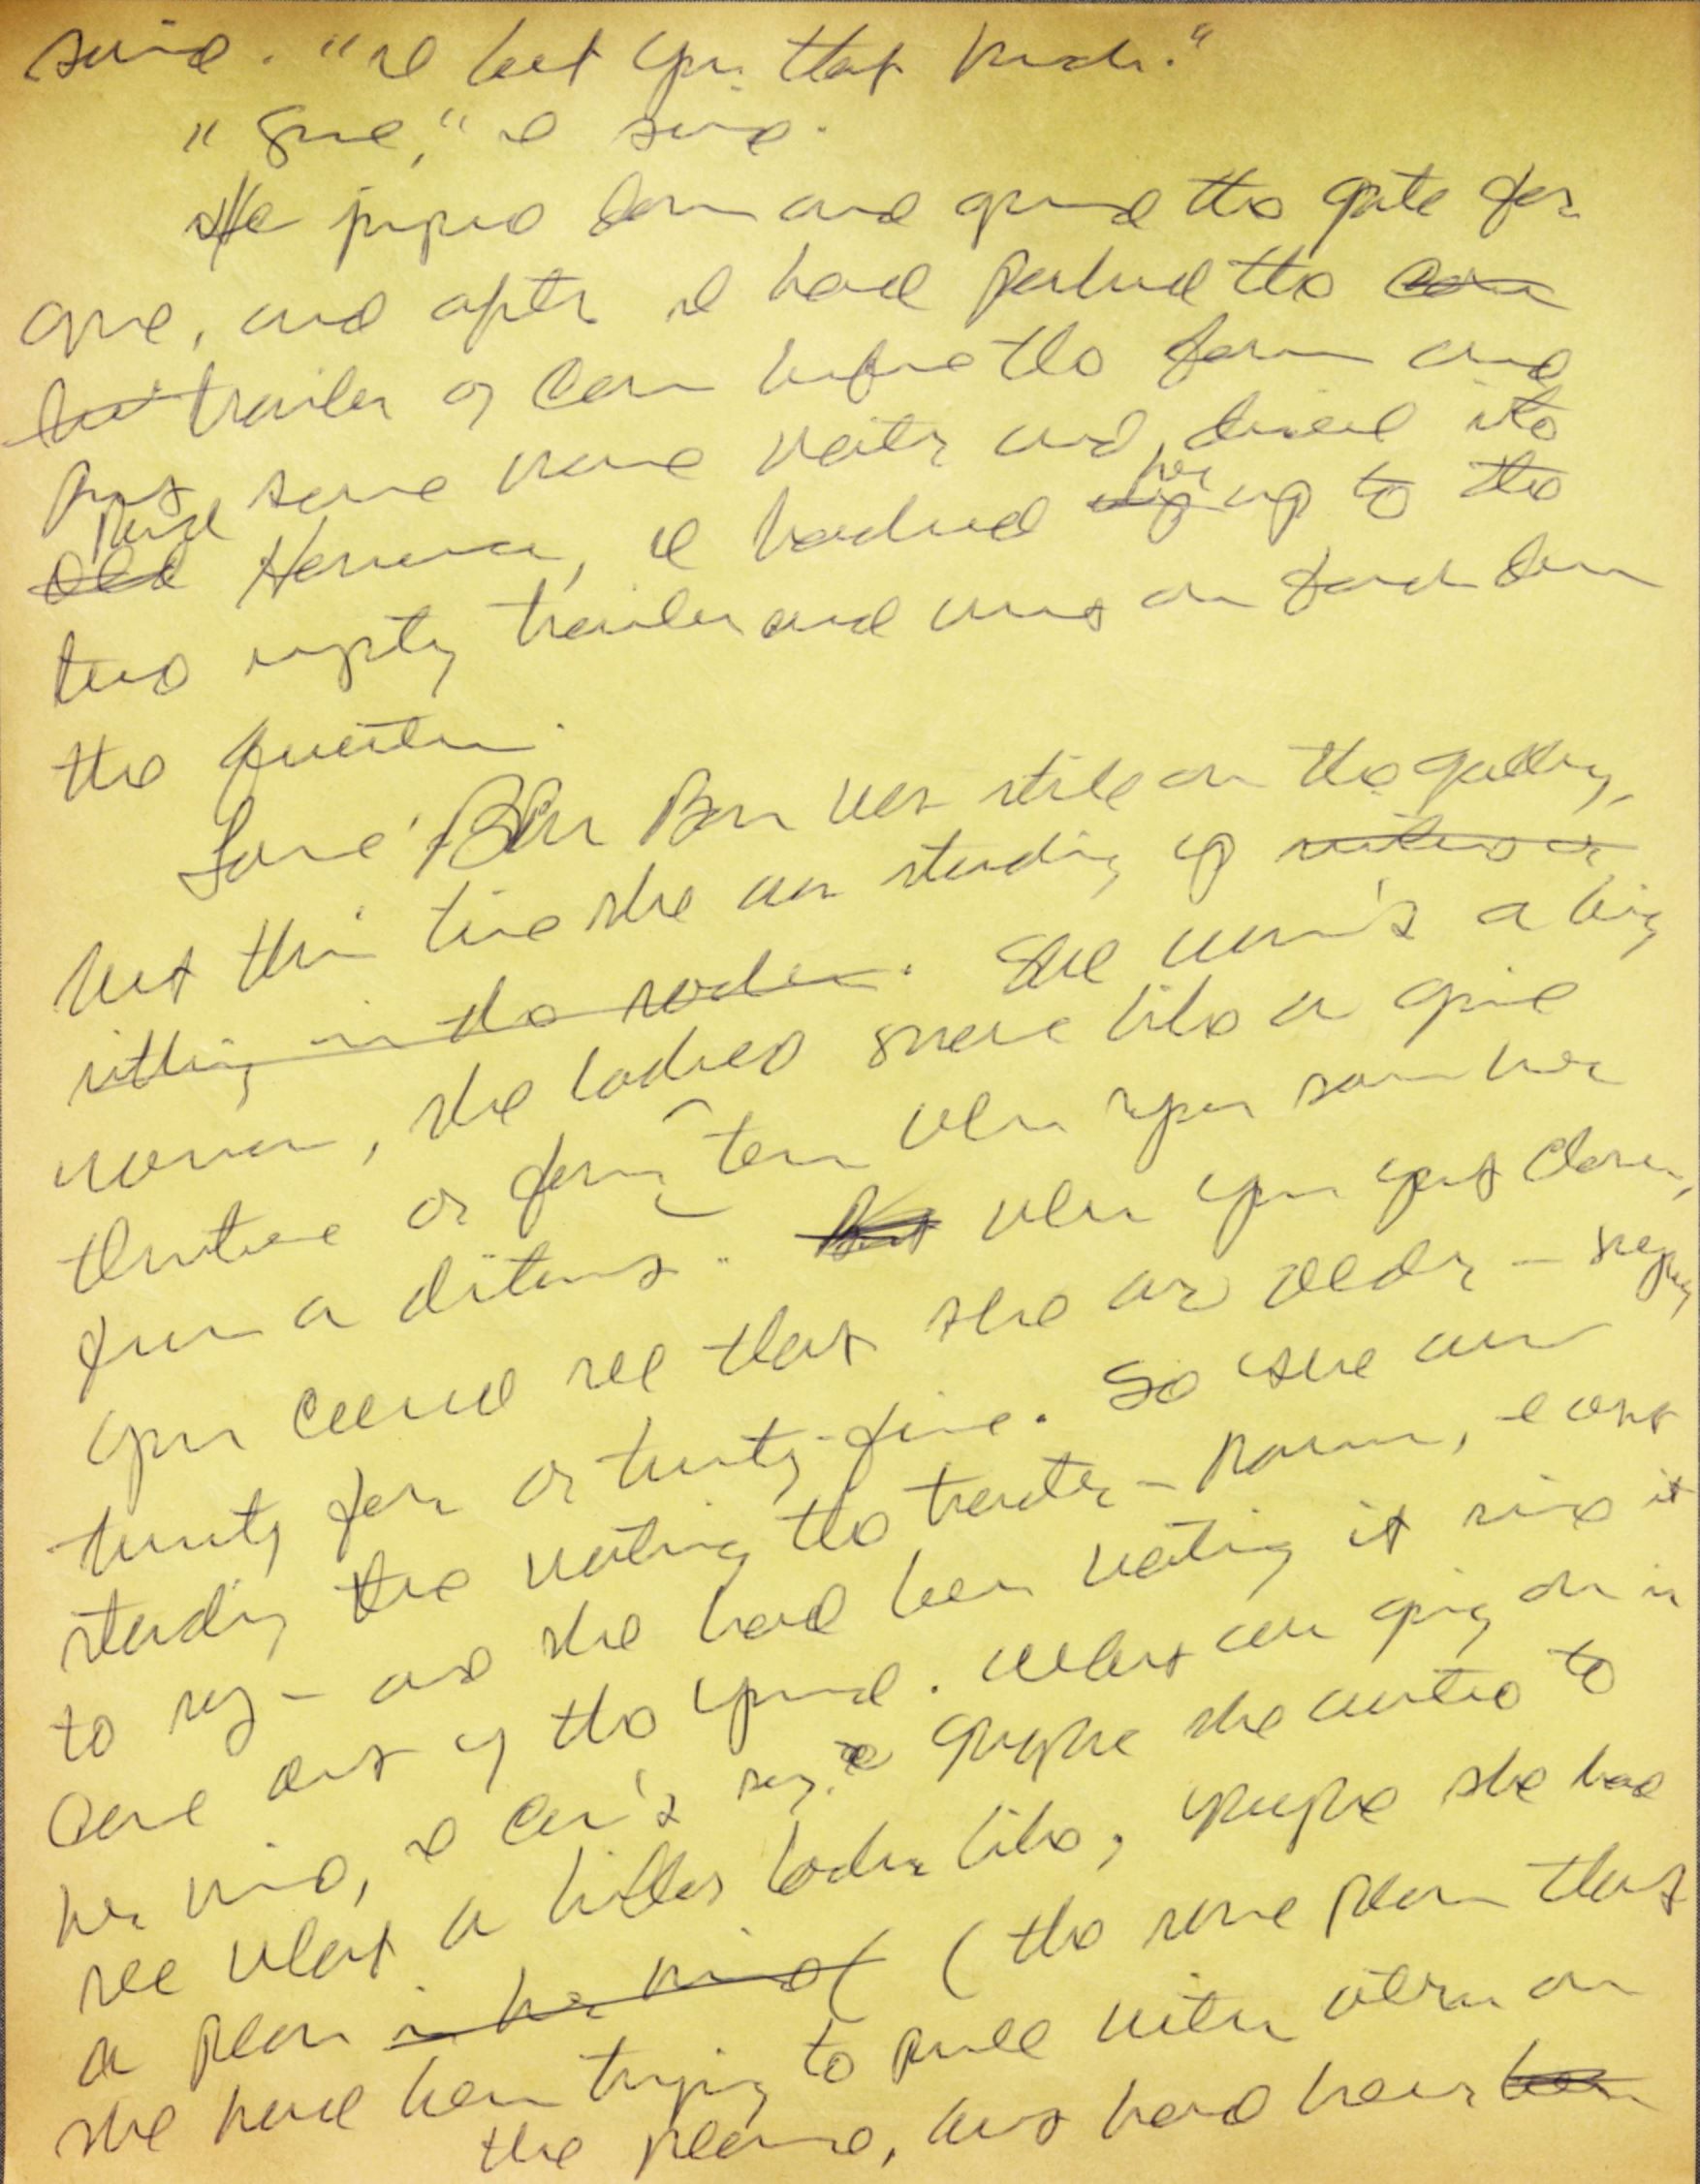 said. "I'll bet you that much."
"Sure," I said.
He jumped down and opened the gate for
me, and after I had parked the
trailer of corn before the barn and
got some more water and
Herman, I hooked her up to the
two empty trailers and went on back down
the quarter.
Louise Bon Bon was still on the gallery,
but this time she was standing up instead of
sitting in the rocker. She wasn't a big
woman, she looked more like a girl
thirteen or fourteen when you saw her
from a distance. But when you got closer,
you could see that she was older — maybe
twenty four or twenty-five. So she was
standing there watching the tractor — Marcus, I want
to say — as she had been watching it since it
came out of the yard. What was going on in
her mind, I can't say. Maybe she wanted to
see what a killer looked like; maybe she had
a plan in her mind (the same plan that
she had been trying to pull with others on
the place, but had been